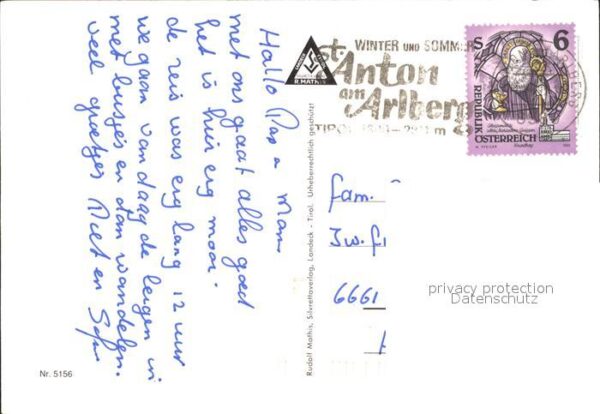 Hallo Pap en Mam
met ons gaat alles goed
het is hier erg mooi.
de reis was erg lang 12 uur
we gaan vandaag de bergen in
met busjes en dan wandelen.
veel groetjes Piet en
Nr. 5156
R. MATHIS
Rudolf Mathis, Silvrettaverlag, Landeck - Tirol. Urheberrechtlich geschützt
WINTER UND SOMMER
St. Anton
am Arlberg
TIROL
S 6
REPUBLIK
ÖSTERREICH
fam.
6661
privacy protection
Datenschutz